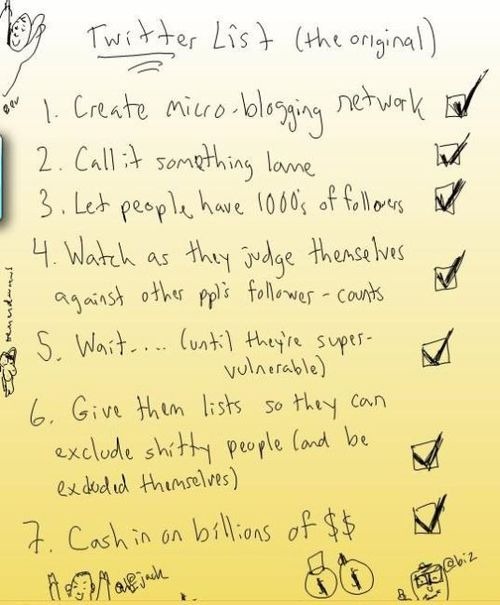 Twitter List (the original)
1. Create micro-blogging network
2. Call it something lame
3. Let people have 1000's of followers
4. Watch as they judge themselves
against other ppl's follower-counts
5. Wait.... (until they're super-
vulnerable)
6. Give them lists so they can
exclude shitty people (and be
excluded themselves)
7. Cash in on billions of $$
@jack
$ $
@biz
ev